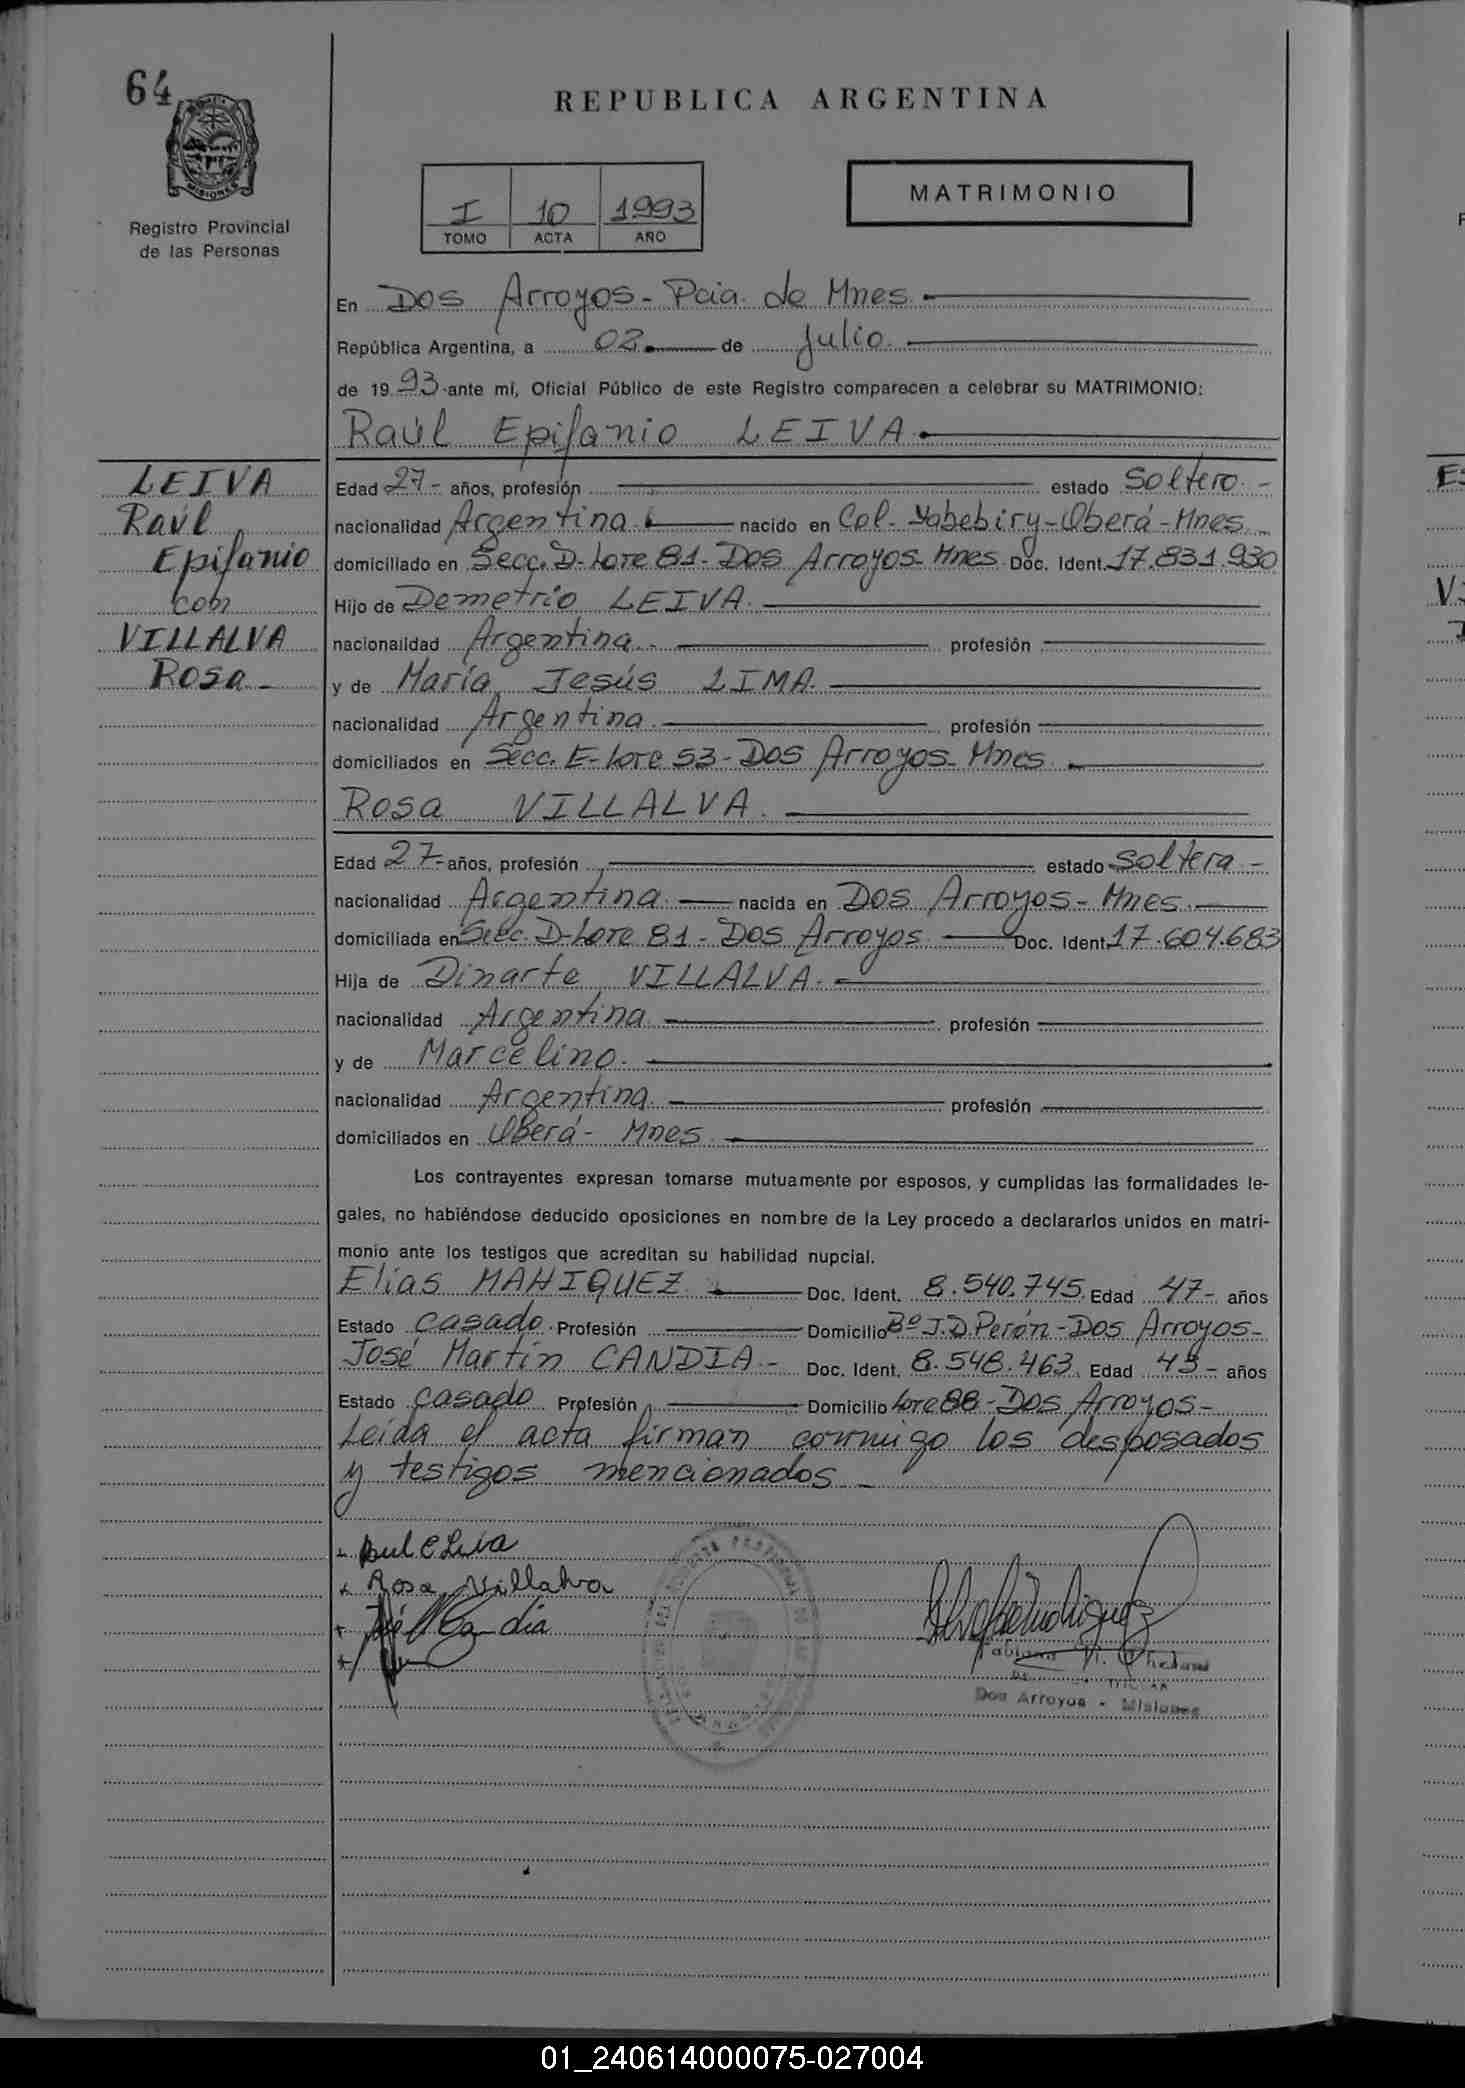 64
MISIONES
Registro Provincial
de las Personas
REPUBLICA ARGENTINA
I 10 1993
TOMO ACTA AÑO
MATRIMONIO
En Dos Arroyos - Pcia. de Mnes.
República Argentina, a 02 de Julio.
de 1993 ante mí, Oficial Público de este Registro comparecen a celebrar su MATRIMONIO:
Raúl Epifanio LEIVA
LEIVA
Raúl
Epifanio
con
VILLALVA
Rosa -
Edad 27- años, profesión estado Soltero -
nacionalidad Argentina nacido en Col. Yabebiry - Oberá - Mnes
domiciliado en Secc. D - Lote 81 - Dos Arroyos - Mnes Doc. Ident. 17.831.930
Hijo de Demetrio LEIVA
nacionalidad Argentina profesión
y de María Jesús LIMA
nacionalidad Argentina profesión
domiciliados en Secc. E - Lote 53 - Dos Arroyos - Mnes
Rosa VILLALVA.
Edad 27- años, profesión estado Soltera -
nacionalidad Argentina nacida en Dos Arroyos - Mnes.
domiciliada en Secc. D - Lote 81 - Dos Arroyos Doc. Ident. 17.604.683
Hija de Dinarte VILLALVA.
nacionalidad Argentina profesión
y de Marcelino.
nacionalidad Argentina profesión
domiciliados en Oberá - Mnes
Los contrayentes expresan tomarse mutuamente por esposos, y cumplidas las formalidades le-
gales, no habiéndose deducido oposiciones en nombre de la Ley procedo a declararlos unidos en matri-
monio ante los testigos que acreditan su habilidad nupcial.
Elias MAHIQUEZ Doc. Ident. 8.540.745 Edad 47- años
Estado Casado Profesión Domicilio Bº J.D. Perón - Dos Arroyos -
José Martín CANDIA - Doc. Ident. 8.548.463 Edad 43- años
Estado Casado Profesión Domicilio Lote 88 - Dos Arroyos -
Leída el acta firman conmigo los desposados
y testigos mencionados -
Raul E Leiva
Rosa Villalva
José M Candia
TITULAR
Dos Arroyos - Misiones
01_240614000075-027004